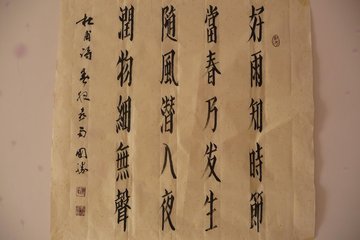 好雨知時節
當春乃发生
随風潜入夜
潤物細無聲
杜甫詩